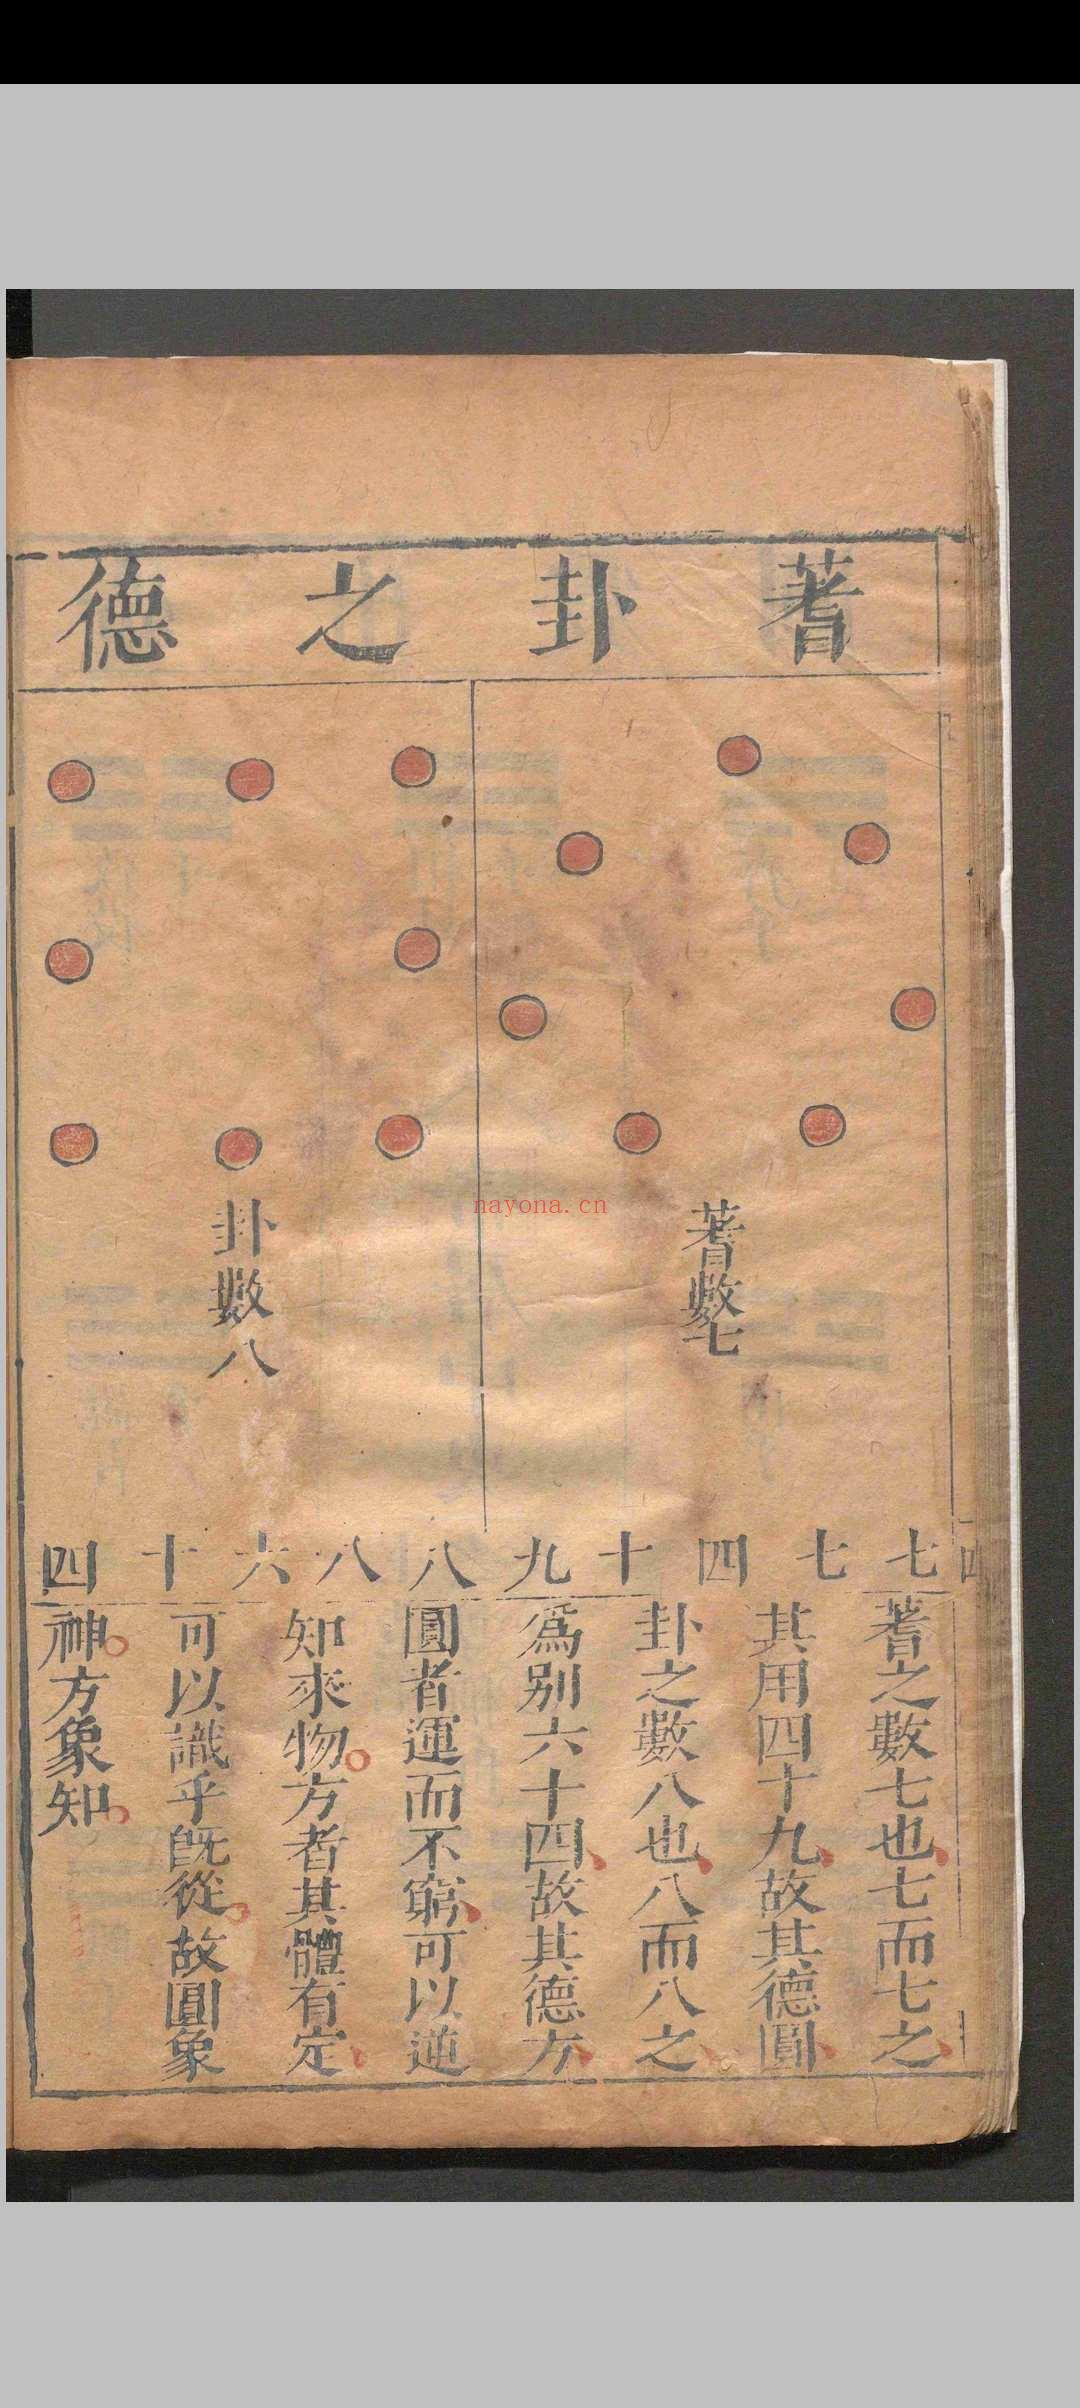 蓍卦之德
蓍數七
卦數八
nayona.cn
七七四十九八八六十四
蓍之數七也七而七之
其用四十九故其德圓
卦之數八也八而八之
為別六十四故其德方
圓者運而不窮可以逆
知來物方者其體有定
可以識乎旣從故圓象
神方象知